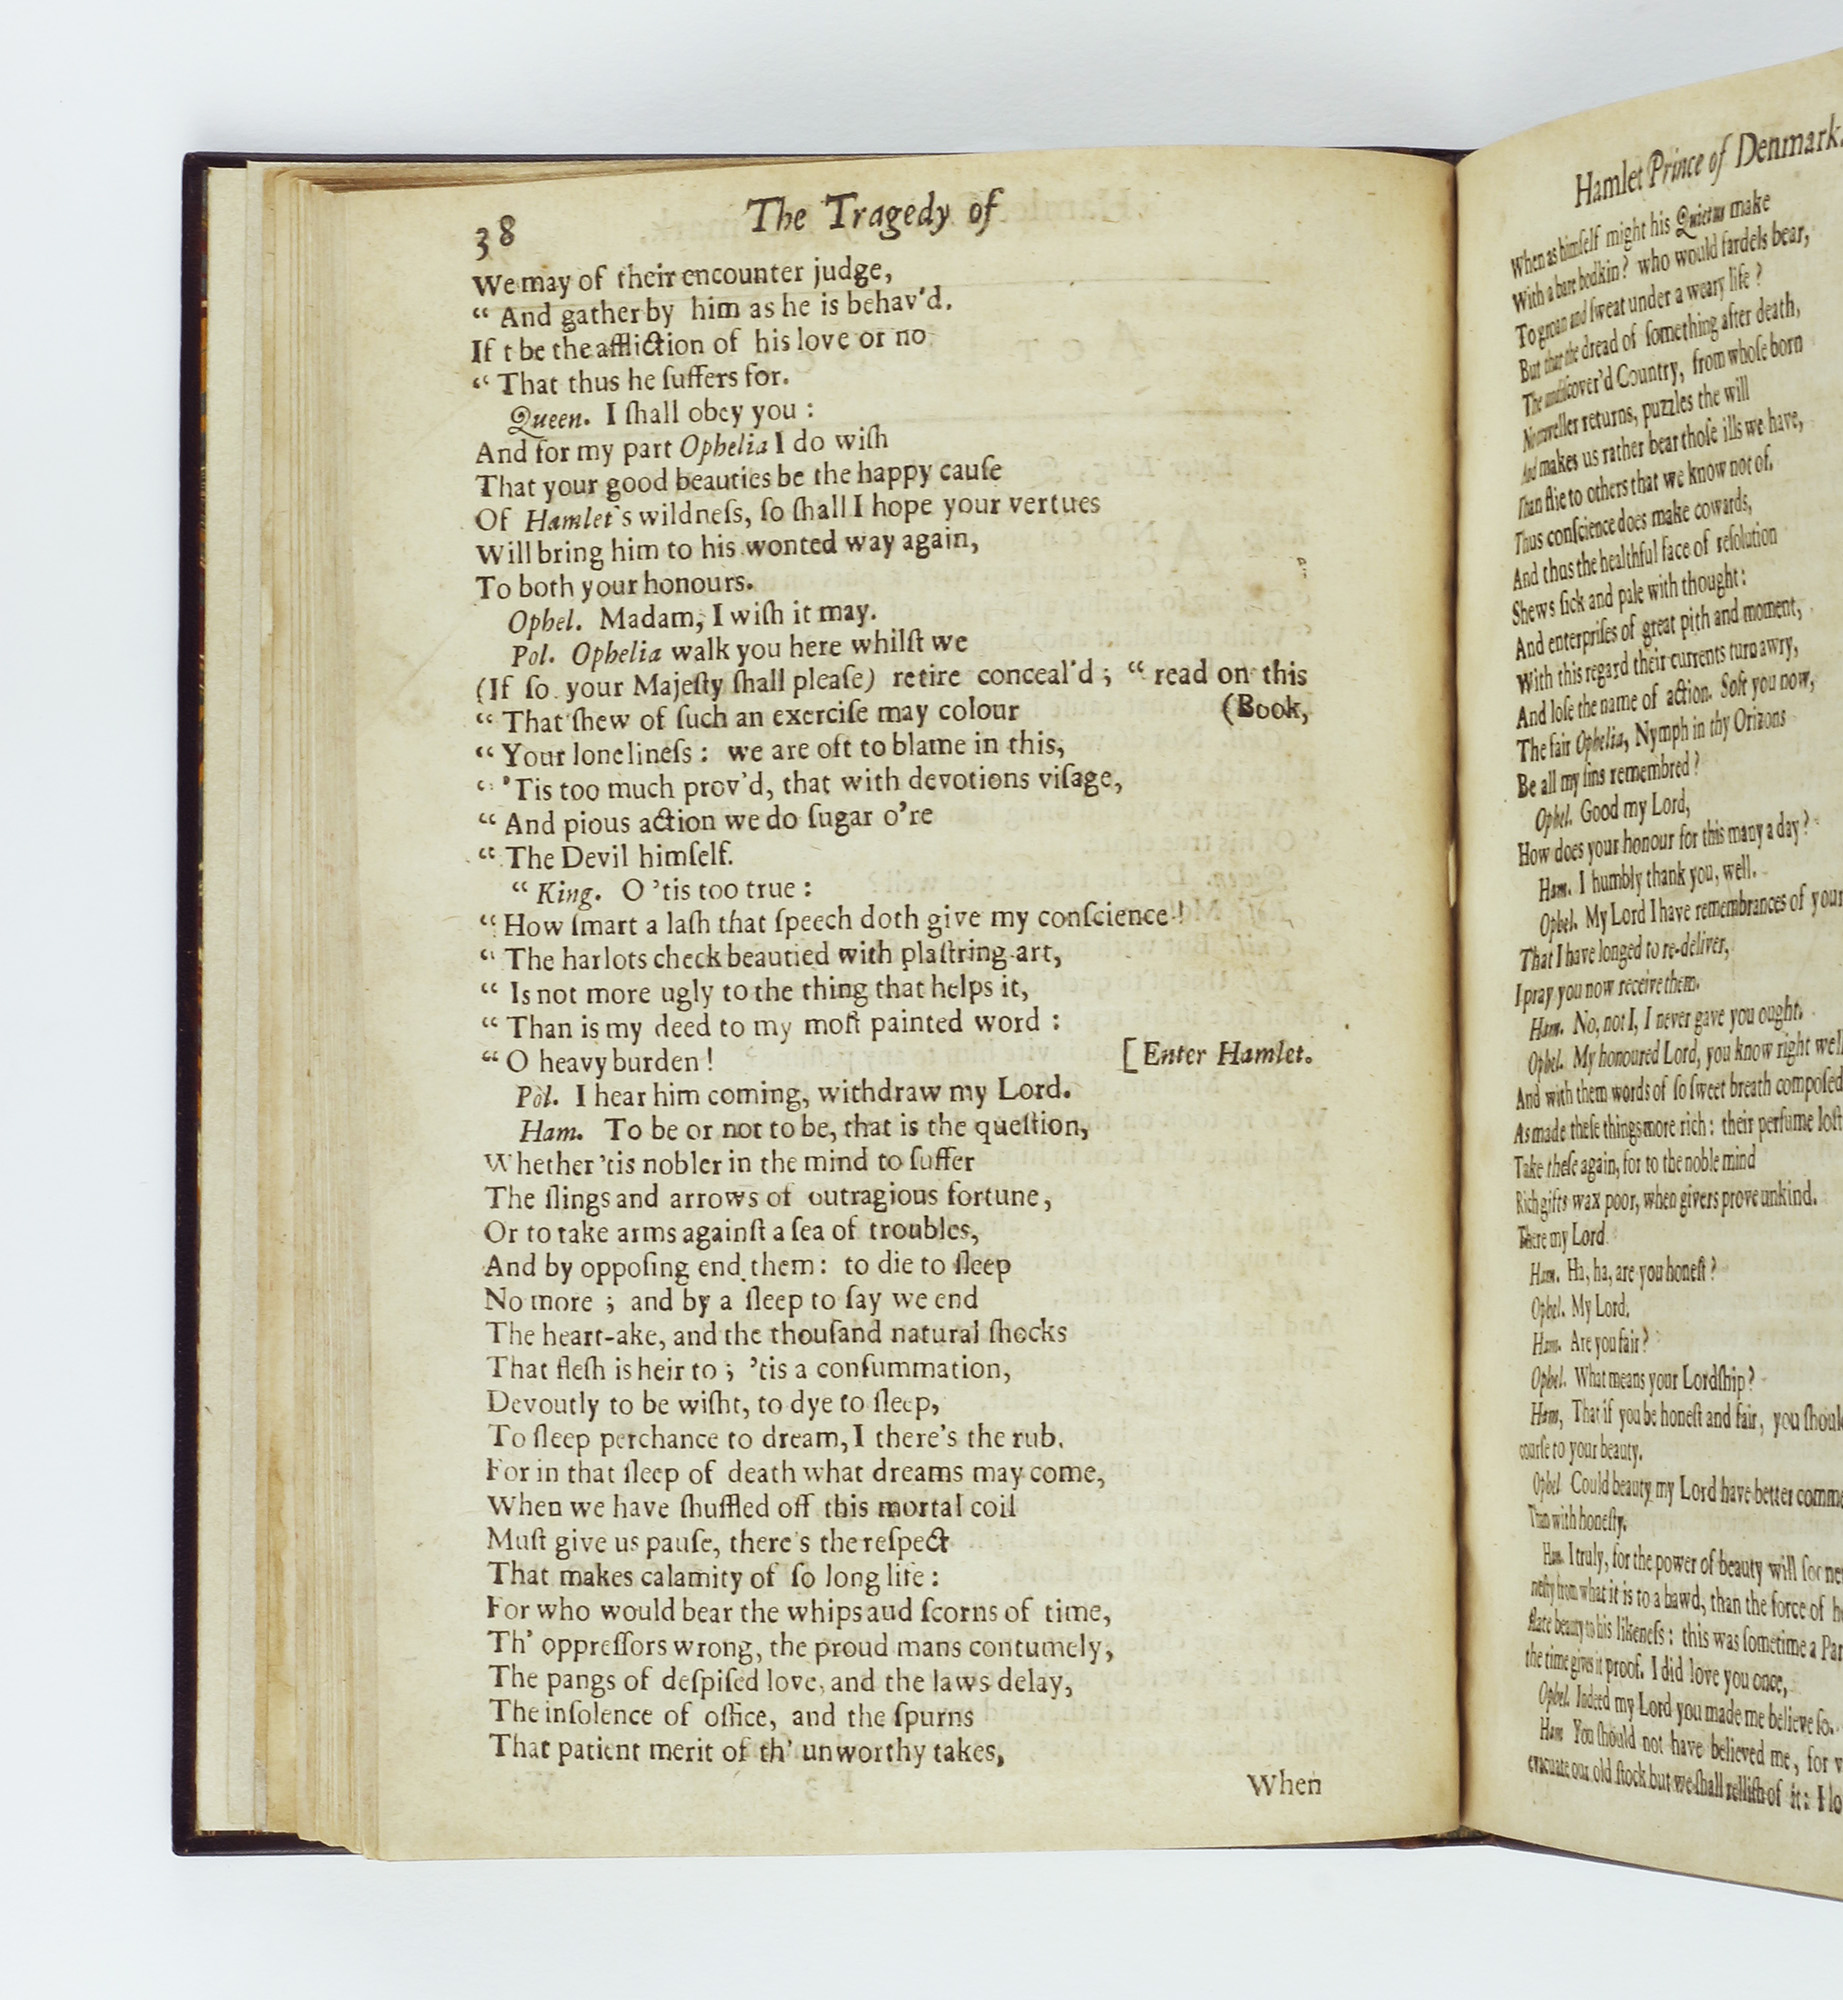 38 The Tragedy of
We may of their encounter judge,
“ And gather by him as he is behav'd.
If t be the affliction of his love or no
“ That thus he ſuffers for.
Queen. I ſhall obey you :
And for my part Ophelia I do wiſh
That your good beauties be the happy cauſe
Of Hamlet's wildneſs, ſo ſhall I hope your vertues
Will bring him to his wonted way again,
To both your honours.
Ophel. Madam, I wiſh it may.
Pol. Ophelia walk you here whilſt we
(If ſo your Majeſty ſhall pleaſe) retire conceal'd ; “ read on this
“ That ſhew of ſuch an exerciſe may colour (Book,
“ Your lonelineſs : we are oft to blame in this,
“ 'Tis too much prov'd, that with devotions viſage,
“ And pious action we do ſugar o're
“ The Devil himſelf.
“ King. O 'tis too true :
“ How ſmart a laſh that ſpeech doth give my conſcience !
“ The harlots check beautied with plaſtring art,
“ Is not more ugly to the thing that helps it,
“ Than is my deed to my moſt painted word :
“ O heavy burden ! [Enter Hamlet.
Pol. I hear him coming, withdraw my Lord.
Ham. To be or not to be, that is the queſtion,
Whether 'tis nobler in the mind to ſuffer
The ſlings and arrows of outragious fortune,
Or to take arms againſt a ſea of troubles,
And by oppoſing end them : to die to ſleep
No more ; and by a ſleep to ſay we end
The heart-ake, and the thouſand natural ſhocks
That fleſh is heir to ; 'tis a conſummation,
Devoutly to be wiſht, to dye to ſleep,
To ſleep perchance to dream, I there's the rub.
For in that ſleep of death what dreams may come,
When we have ſhuffled off this mortal coil
Muſt give us pauſe, there's the reſpect
That makes calamity of ſo long life :
For who would bear the whips aud ſcorns of time,
Th' oppreſſors wrong, the proud mans contumely,
The pangs of deſpiſed love, and the laws delay,
The inſolence of office, and the ſpurns
That patient merit of th' unworthy takes,
When
Hamlet Prince of Denmark.
When as himſelf might his Quietus make
With a bare bodkin ? who would fardels bear,
To groan and ſweat under a weary life ?
But that the dread of ſomething after death,
The undiſcover'd Country, from whoſe born
No traveller returns, puzzles the will
And makes us rather bear thoſe ills we have,
Than flie to others that we know not of.
Thus conſcience does make cowards,
And thus the healthful face of reſolution
Shews ſick and pale with thought :
And enterpriſes of great pith and moment,
With this regard their currents turn awry,
And loſe the name of action. Soft you now,
The fair Ophelia, Nymph in thy Orizons
Be all my ſins remembred ?
Ophel. Good my Lord,
How does your honour for this many a day ?
Ham. I humbly thank you, well.
Ophel. My Lord I have remembrances of your
That I have longed to re-deliver,
I pray you now receive them.
Ham. No, not I, I never gave you ought.
Ophel. My honoured Lord, you know right well
And with them words of ſo ſweet breath compoſed
As made theſe things more rich : their perfume loſt
Take theſe again, for to the noble mind
Rich gifts wax poor, when givers prove unkind.
There my Lord
Ham. Ha, ha, are you honeſt ?
Ophel. My Lord.
Ham. Are you fair ?
Ophel. What means your Lordſhip ?
Ham, That if you be honeſt and fair, you
courſe to your beauty.
Ophel. Could beauty my Lord have better
Than with honeſty.
Ham. I truly, for the power of beauty will
neſty from what it is to a bawd, than the force of
ſlate beauty to his likeneſs : this was ſometime a
the time gives it proof. I did love you once,
Ophel. Indeed my Lord you made me believe ſo.
Ham You ſhould not have believed me, for
evacuate our old ſtock but we ſhall relliſh of it : I